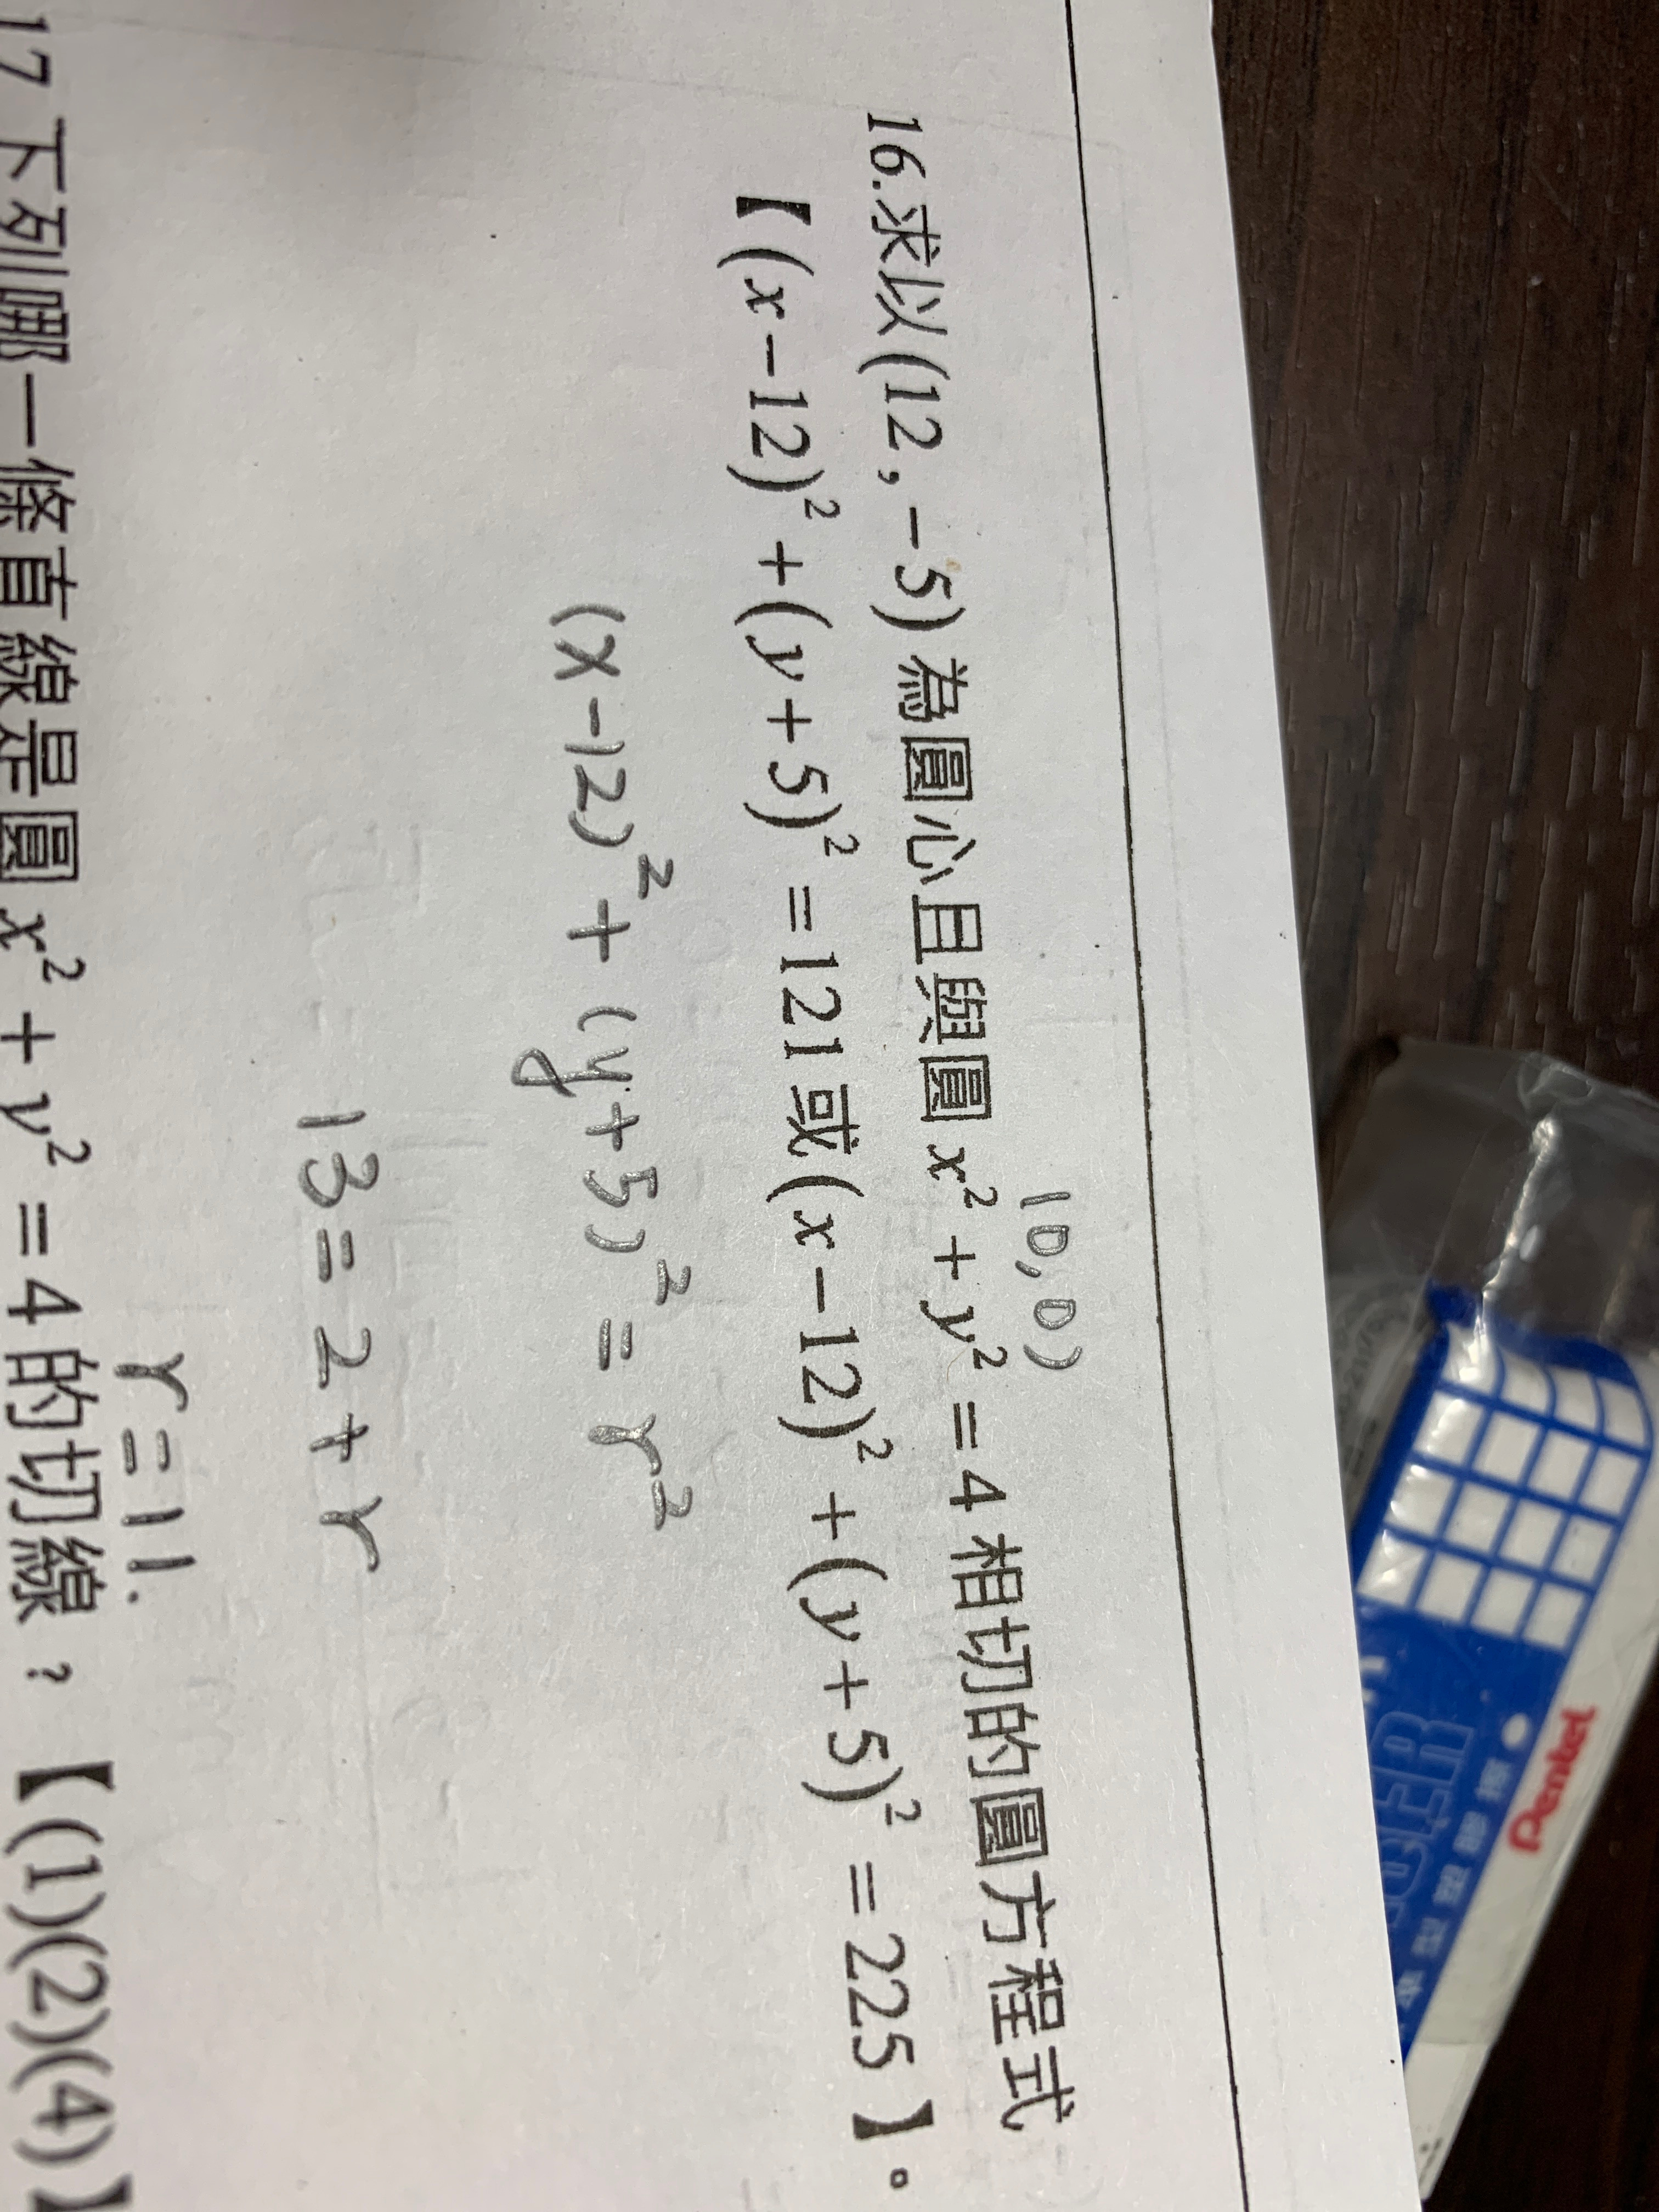 16.求以(12,−5)為圓心且與圓x²+y²=4相切的圓方程式
(0,0)
【(x−12)²+(y+5)²=121或(x−12)²+(y+5)²=225】。
(x-12)²+(y+5)²=r²
13=2+r
r=11.
17.下列哪一條直線是圓x²+y²=4的切線?【(1)(2)(4)】
Pentel